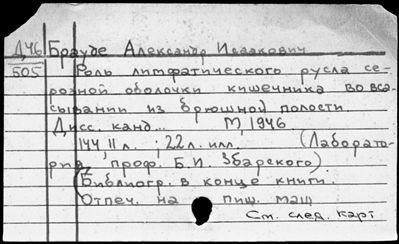 Д46 Брауде Александр Исаакович
505 Роль лимфатического русла се-
розной оболочки кишечника во вса-
сывании из брюшной полости.
Дисс. канд... М, 1946
144 11 л. ; 22 л. илл. (Лаборато-
рия проф. Б.И. Збарского)
(Библиогр. в конце книги.
Отпеч. на пиш. маш
См. след. карт